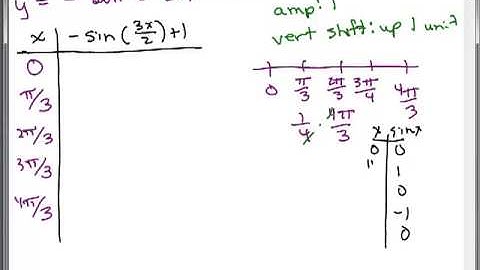 y = -
amp: 1
vert shift: up 1 unit
x | - sin (3x/2) + 1
0
π/3
2π/3
3π/3
4π/3
0 π/3 2π/3 3π/4 4π/3
1/4 · 4π/3
x | sin x
0 | 0
" | 1
0
-1
0